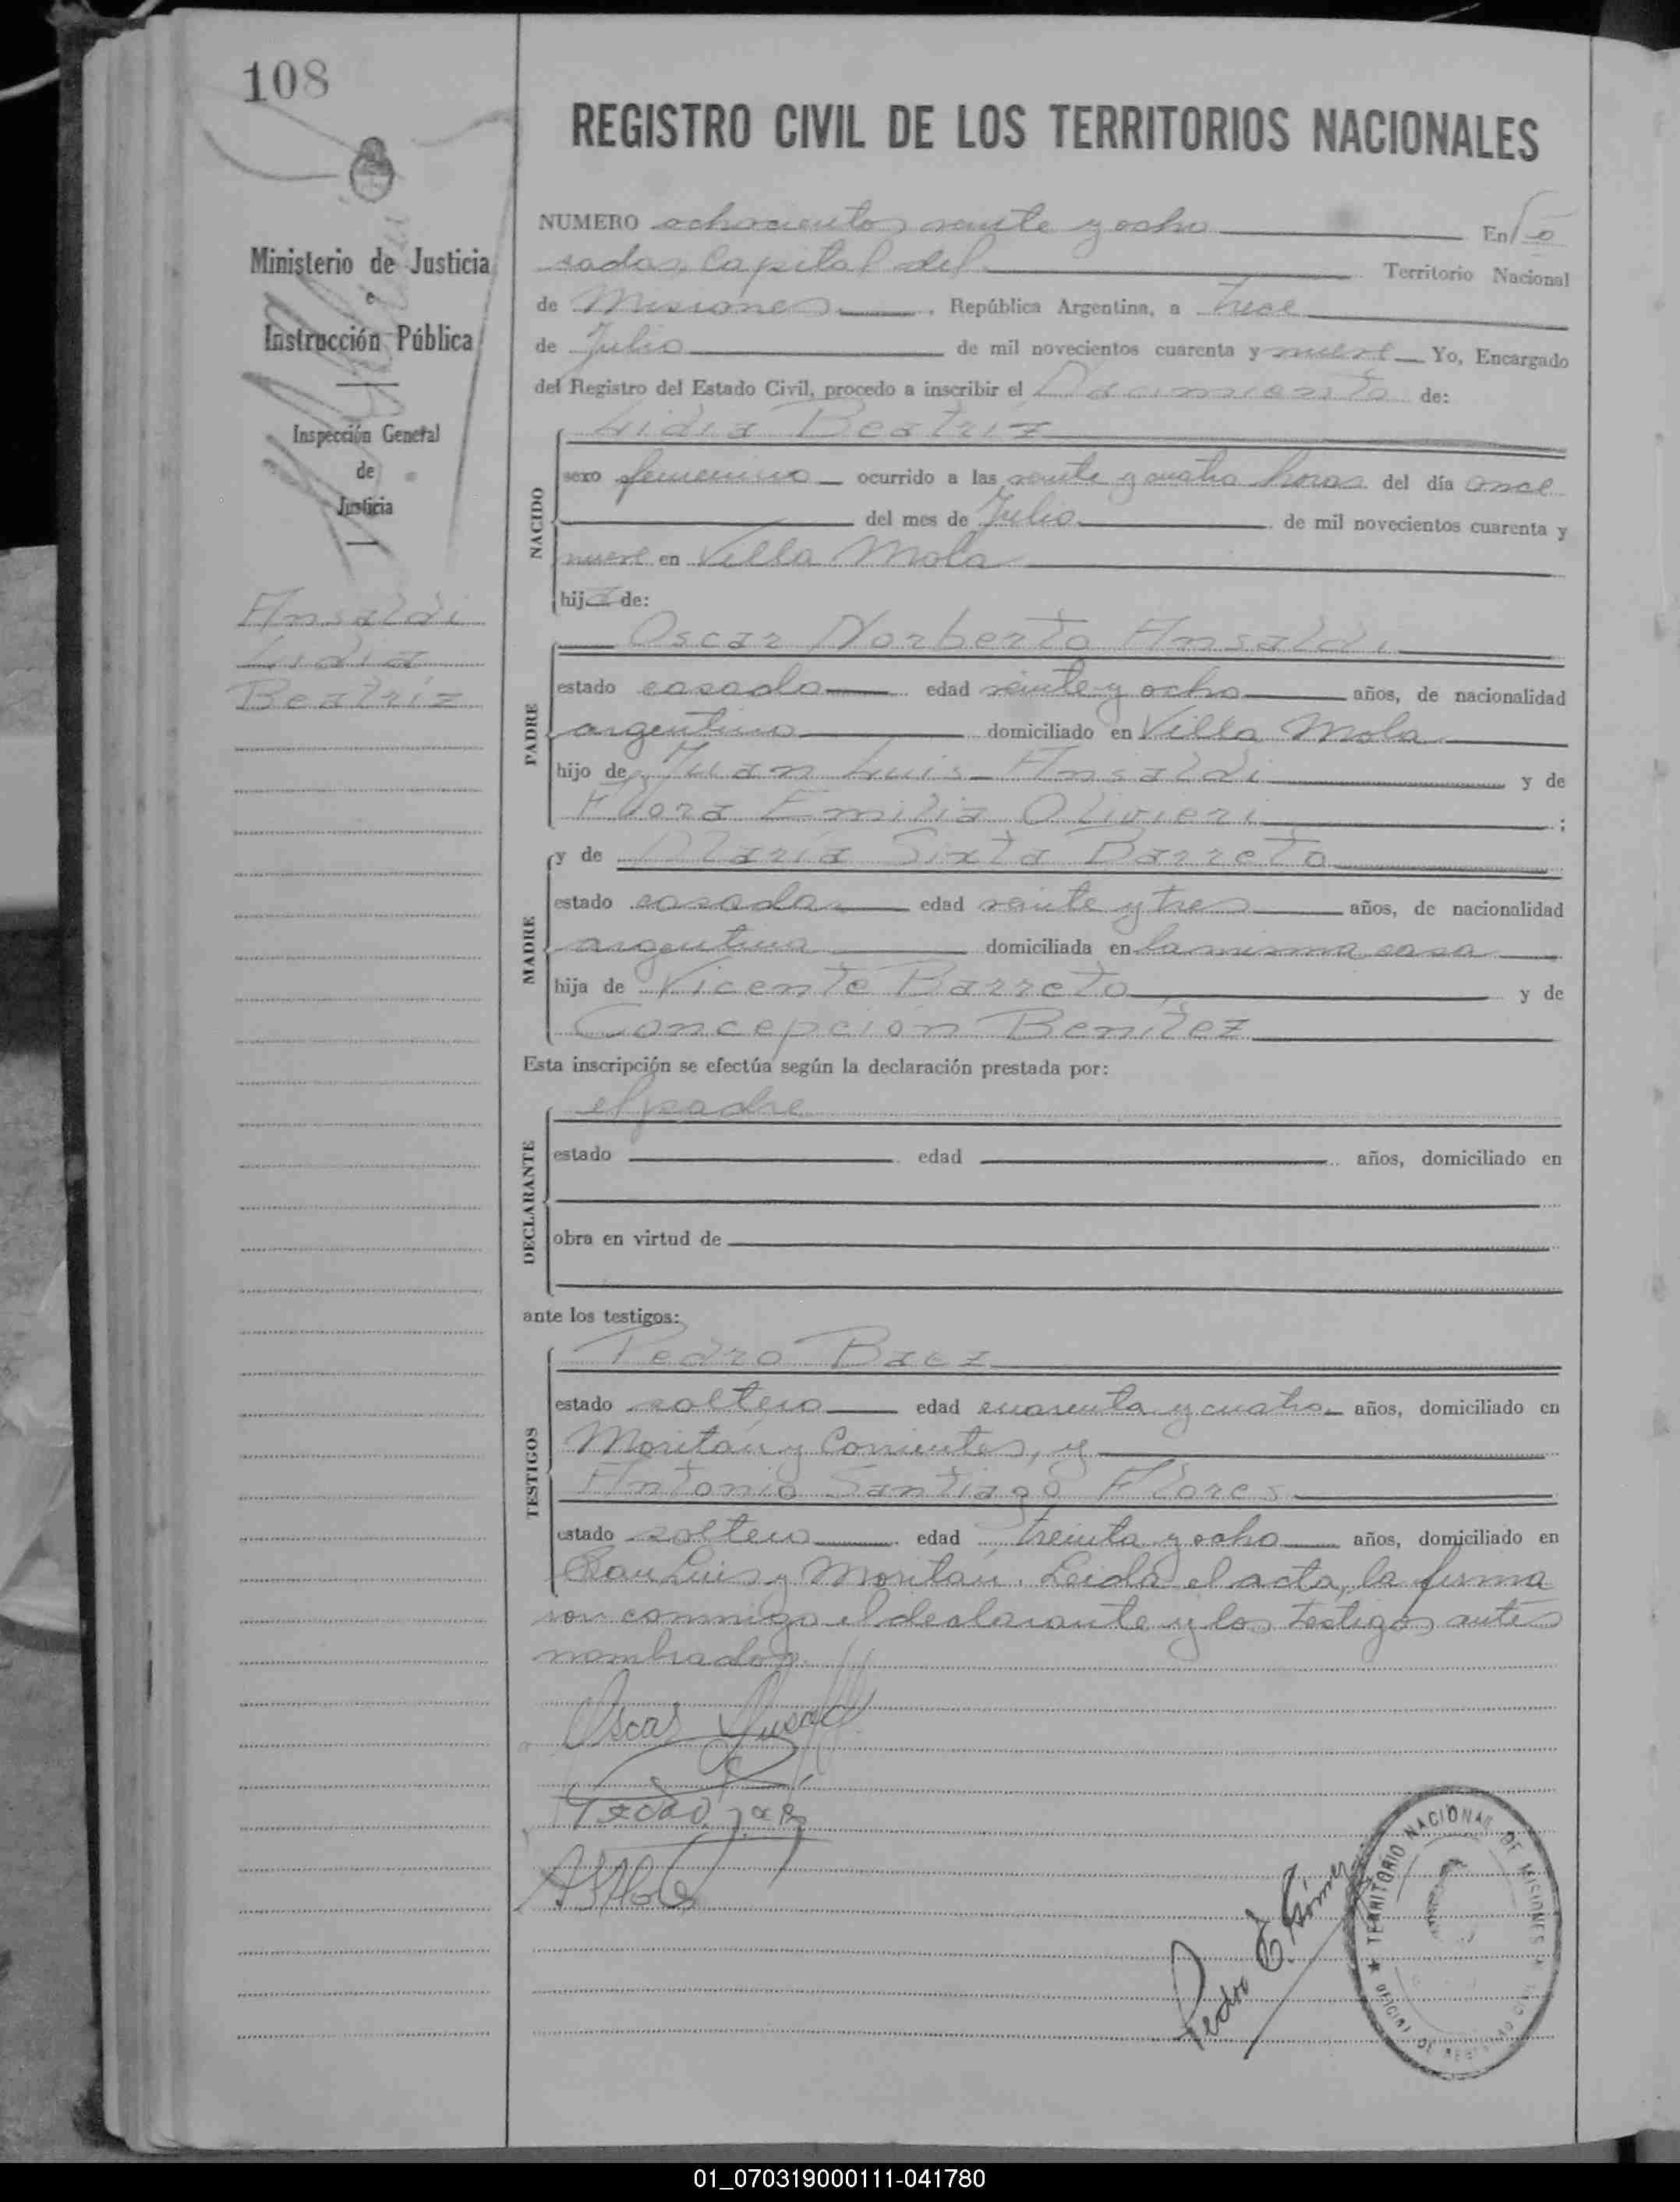 108
REGISTRO CIVIL DE LOS TERRITORIOS NACIONALES
Ministerio de Justicia
e
Instrucción Pública
Inspección General
de
Justicia
Ansaldi
Lidia
Beatriz
NUMERO ochocientos veinte y ocho En Po
sadas, Capital del Territorio Nacional
de Misiones, República Argentina, a trece
de Julio de mil novecientos cuarenta y nueve Yo, Encargado
del Registro del Estado Civil, procedo a inscribir el Nacimiento de:
Lidia Beatriz
NACIDO
sexo femenino ocurrido a las veinte y cuatro horas del día once
del mes de Julio de mil novecientos cuarenta y
nueve en Villa Mola
hija de:
Oscar Norberto Ansaldi
PADRE
estado casado edad veinte y ocho años, de nacionalidad
argentino domiciliado en Villa Mola
hijo de Juan Luis Ansaldi y de
Flora Emilia Olivieri ;
y de María Sixta Barreto
MADRE
estado casada edad veinte y tres años, de nacionalidad
argentina domiciliada en la misma casa
hija de Vicente Barreto y de
Concepción Benítez
Esta inscripción se efectúa según la declaración prestada por:
el padre
DECLARANTE
estado edad años, domiciliado en
obra en virtud de
ante los testigos:
Pedro Baez
TESTIGOS
estado soltero edad cuarenta y cuatro años, domiciliado en
Moritán y Corrientes, y
Antonio Santiago Flores
estado soltero edad treinta y ocho años, domiciliado en
San Luis y Moritán. Leida el acta, la firma
ron conmigo el declarante y los testigos antes
nombrados.
Oscar Ansaldi
Pedro G. Gómez
TERRITORIO NACIONAL DE MISIONES
OFICINA DE REGISTRO CIVIL
01_070319000111-041780